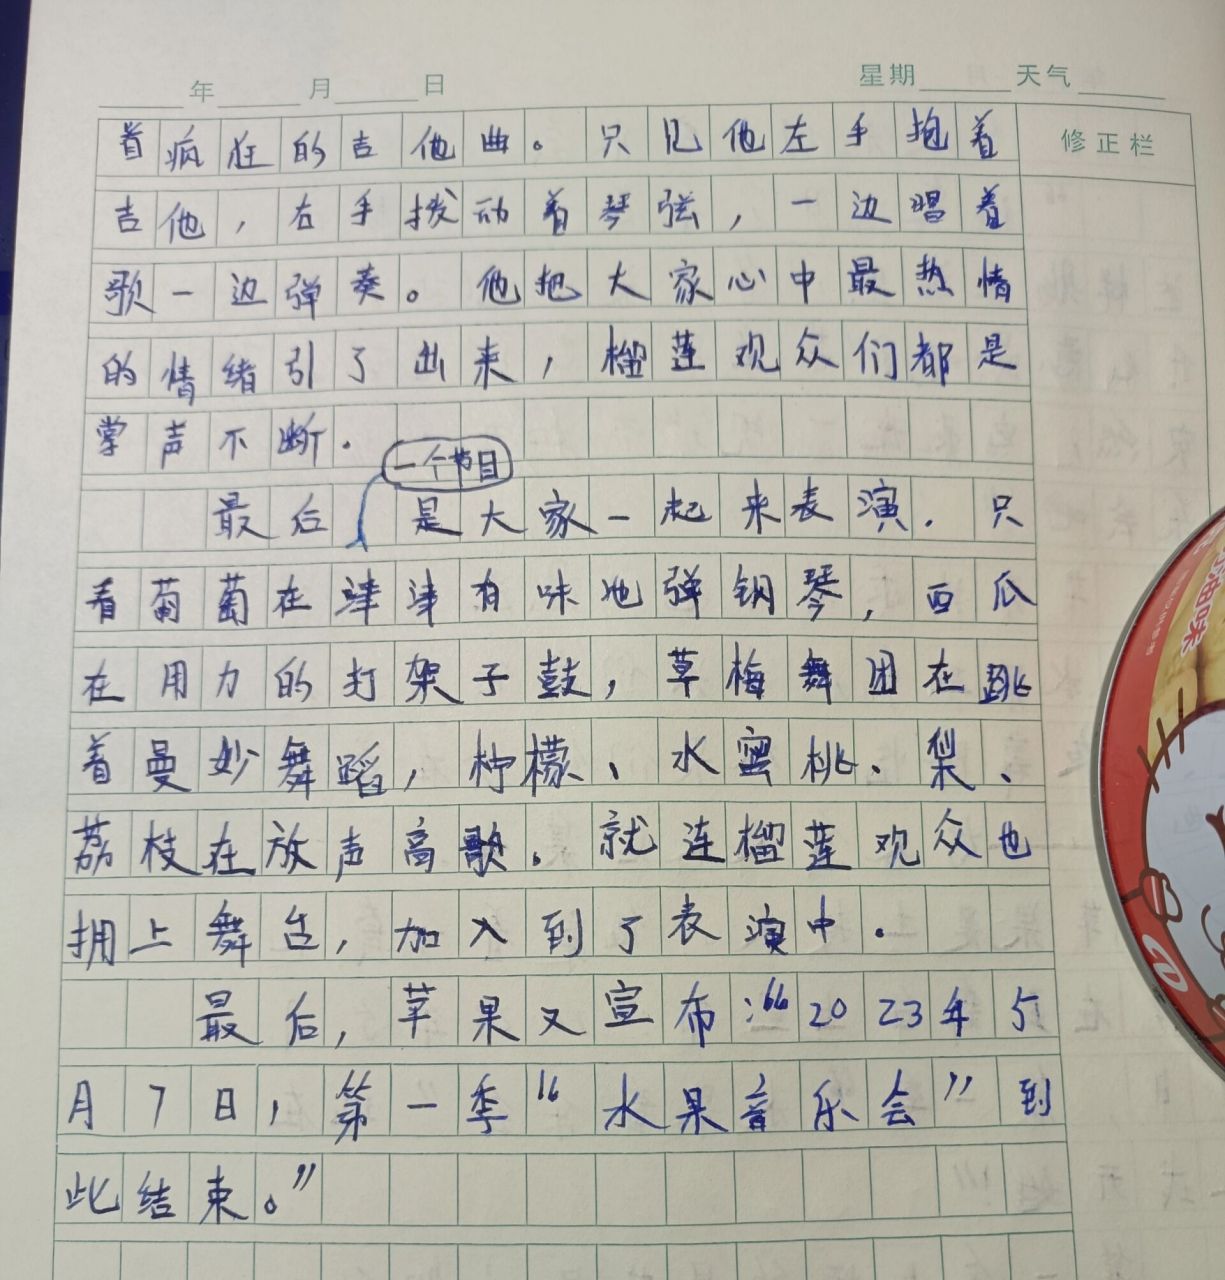 年 月 日 星期 天气
修正栏
着疯狂的吉他曲。只见他左手抱着
吉他，右手拨动着琴弦，一边唱着
歌一边弹奏。他把大家心中最热情
的情绪引了出来，榴莲观众们都是
掌声不断.
一个节目
最后 是大家一起来表演.只
看葡萄在津津有味地弹钢琴，西瓜
在用力的打架子鼓，草梅舞团在跳
着曼妙舞蹈，柠檬、水蜜桃、梨、
荔枝在放声高歌。就连榴莲观众也
拥上舞台，加入到了表演中.
最后，苹果又宣布：“2023年5
月7日，第一季“水果音乐会”到
此结束。”